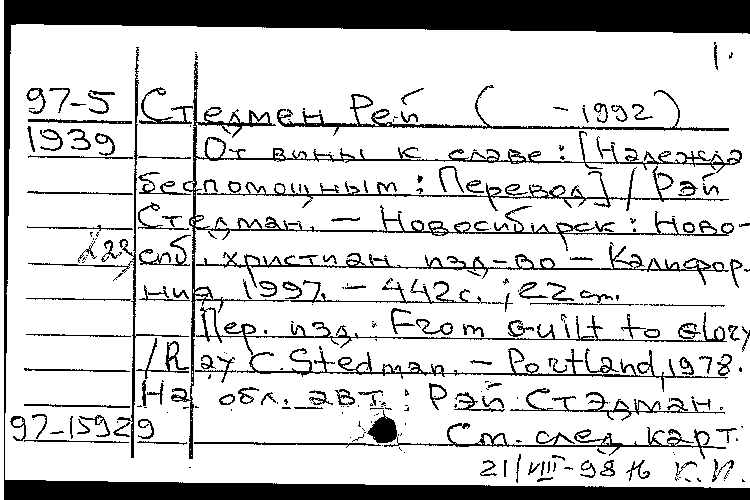 1.
97-5 Стедмен, Рей ( -1992)
1939 От вины к славе: [Надежда
беспомощным: Перевод] / Рэй
Стедман. - Новосибирск: Ново-
сиб. христиан. изд-во - Калифор-
ния, 1997. - 442 с.; 22 см.
Пер. изд.: From guilt to glory
/ Ray C. Stedman. - Portland, 1978.
На обл. авт.: Рэй Стэдман.
97-15929 См. след. карт.
21/VIII-98 К.И.